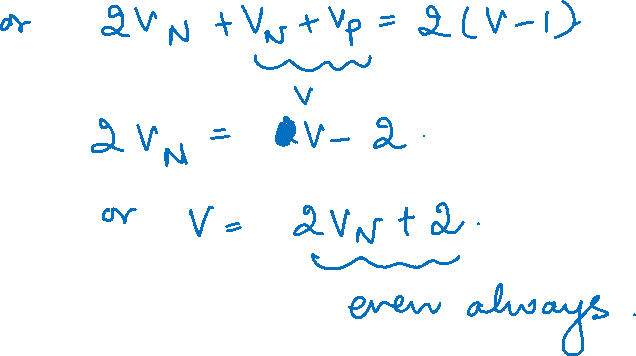 or 2V_N + V_N + V_P = 2(V-1)
V
2V_N = V - 2.
or V = 2V_N + 2.
even always.